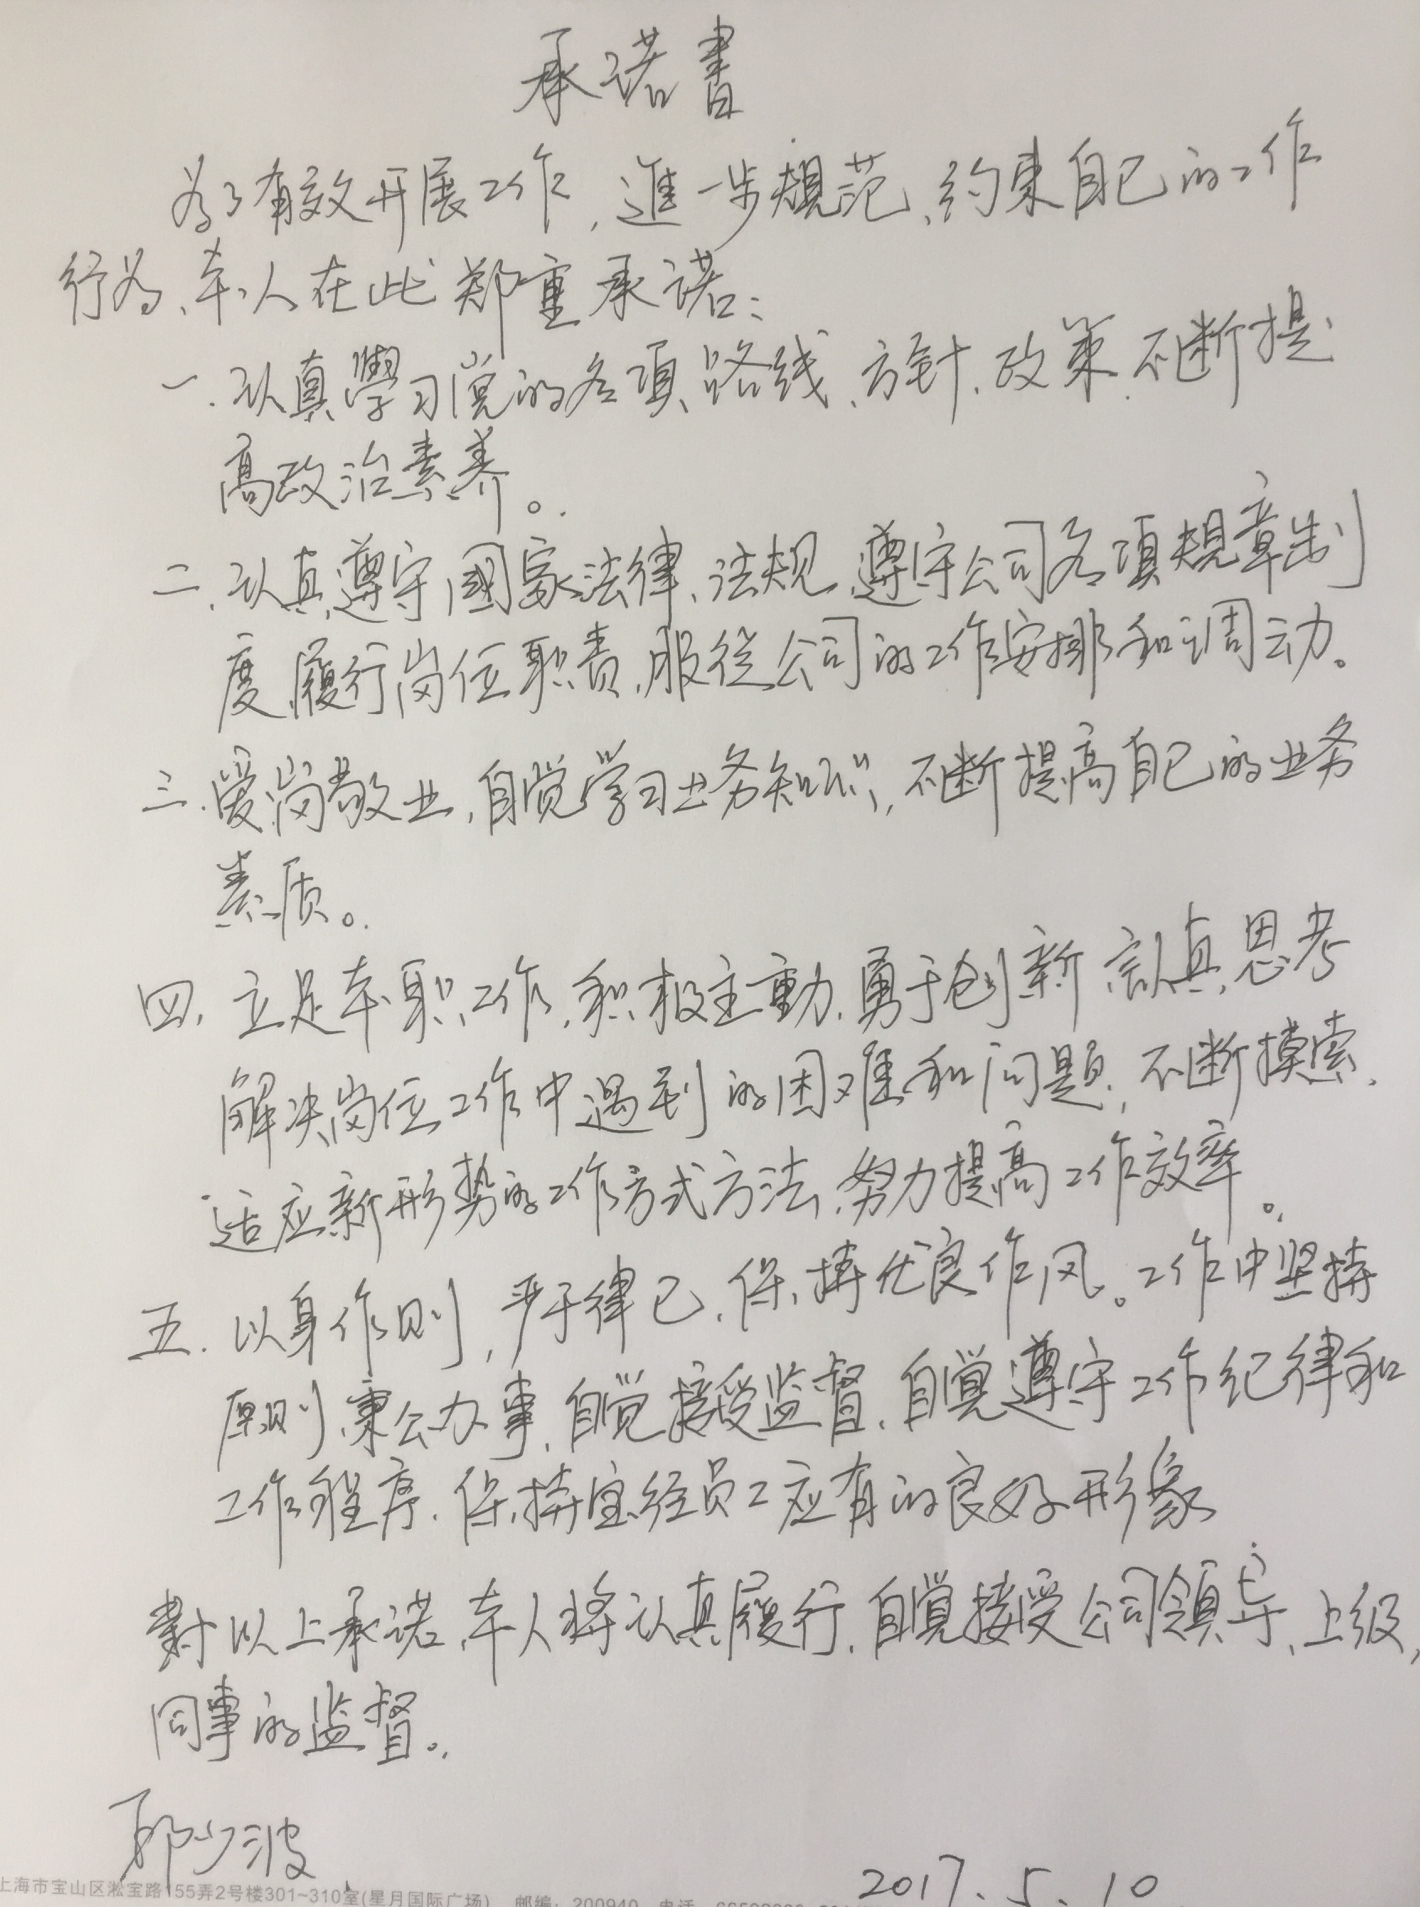 承诺書
为了有效开展工作,進一步規范、约束自己的工作
行为、本人在此郑重承诺:
一.认真學习党的各项路线、方针、政策.不断提
高政治素养。
二.认真遵守國家法律、法规、遵守公司各项規章制
度,履行岗位职责,服從公司的工作安排和调动。
三.爱岗敬业,自觉学习业务知识,不断提高自己的业务
素质。
四.立足本职工作,积极主動,勇于创新,認真思考
解决岗位工作中遇到的困难和问题,不断摸索、
适应新形势的工作方式方法,努力提高工作效率。
五.以身作则,严于律己,保持优良作风。工作中坚持
原则,秉公办事,自觉接受监督,自覺遵守工作纪律和
工作程序.保持宝经员工应有的良好形象
對以上承诺,本人将认真履行,自覺接受公司領导、上级,
同事的监督。
2017.5.10
上海市宝山区淞宝路155弄2号楼301~310室(星月国际广场) 邮编:200940 电话